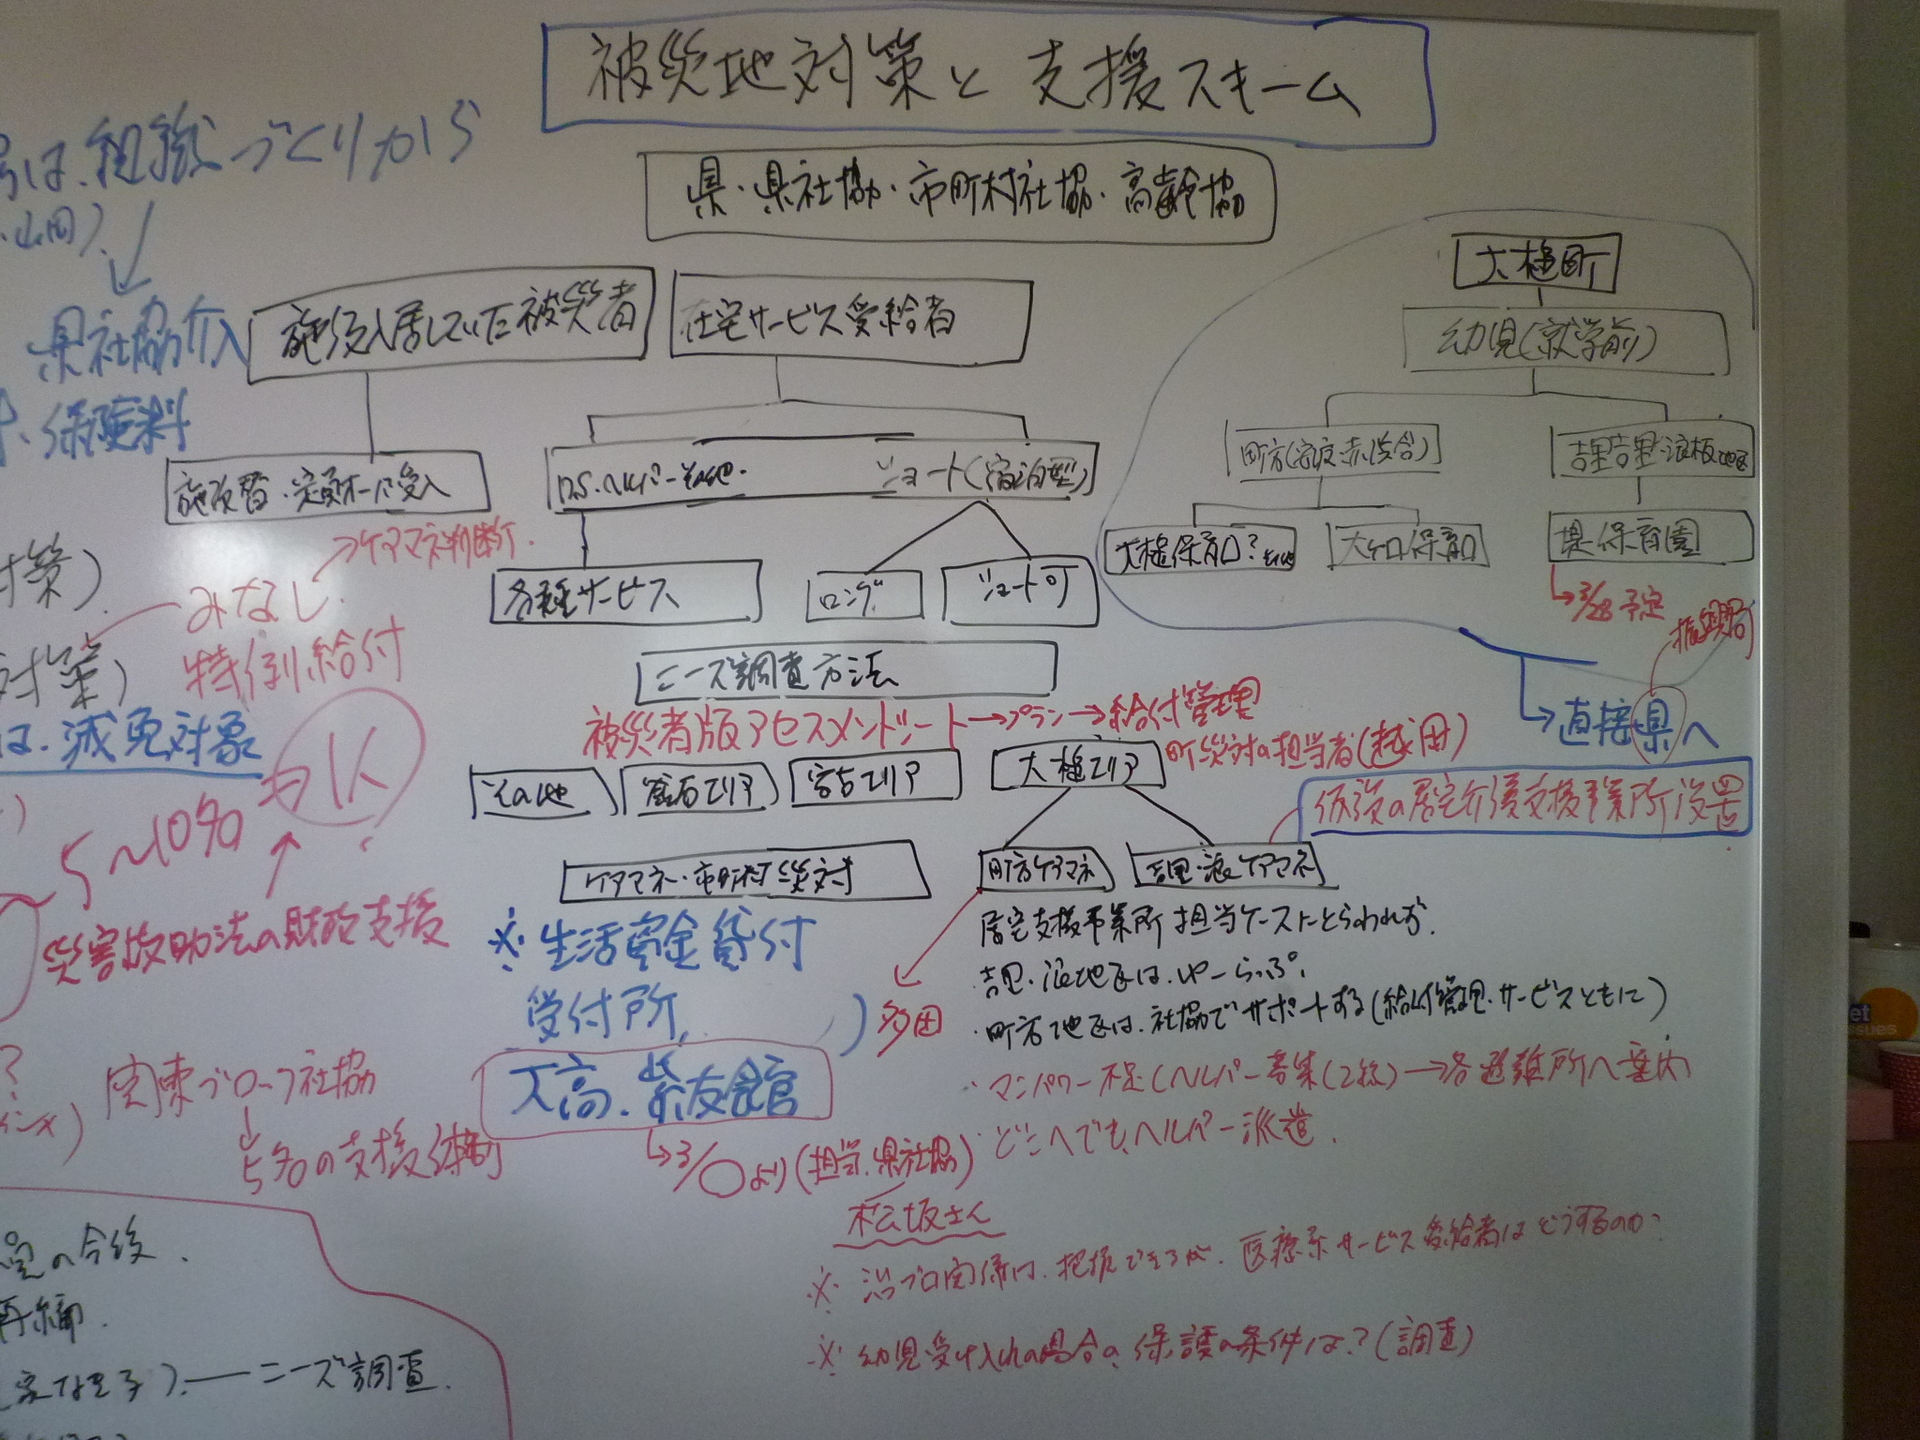 被災地対策と支援スキーム
県・県社協・市町村社協・高齢協
は、組織づくりから
・山田)
県社協介入
保険料
施設入居していた被災者
在宅サービス受給者
施設替・定員オーバー受入
DS・ヘルパー・その他
ショート(宿泊型)
各種サービス
ロング
ショート可
大槌町
幼児(就学前)
町方(安渡・赤浜含)
吉里吉里・浪板地区
大槌保育口?その他
大ケ口保育口
堤・保育園
→3/28予定
→直接県へ
→ケアマネ判断
みなし
特例給付
対策)
対策)
は、減免対象
5〜10%
災害救助法の財政支援
ニーズ調査方法
被災者版アセスメントシート→プラン→給付管理
町災対の担当者(越田)
その他
釜石エリア
宮古エリア
大槌エリア
仮設の居宅介護支援事業所設置
ケアマネ・市町村災対
町方ケアマネ
吉里・浪ケアマネ
多田
居宅支援事業所担当ケースにとらわれず、
吉里・浪地区は、ゆーらっぷ。
・町方地区は、社協でサポートする(給付管理・サービスともに)
・マンパワー不足(ヘルパー募集(2級)→各避難所へ案内
どこへでもヘルパー派遣。
※生活資金貸付
受付所、 )
大高、紫友会館
→3/〇より(担当、県社協)
松坂さん
関東ブロック社協
↓
5名の支援体制
※ 関係は、把握できるが、医療系サービス受給者はどうするのか?
※ 幼児受け入れの場合の、保護の条件は?(調査)
の今後、
再編、
)、―ニーズ調査、